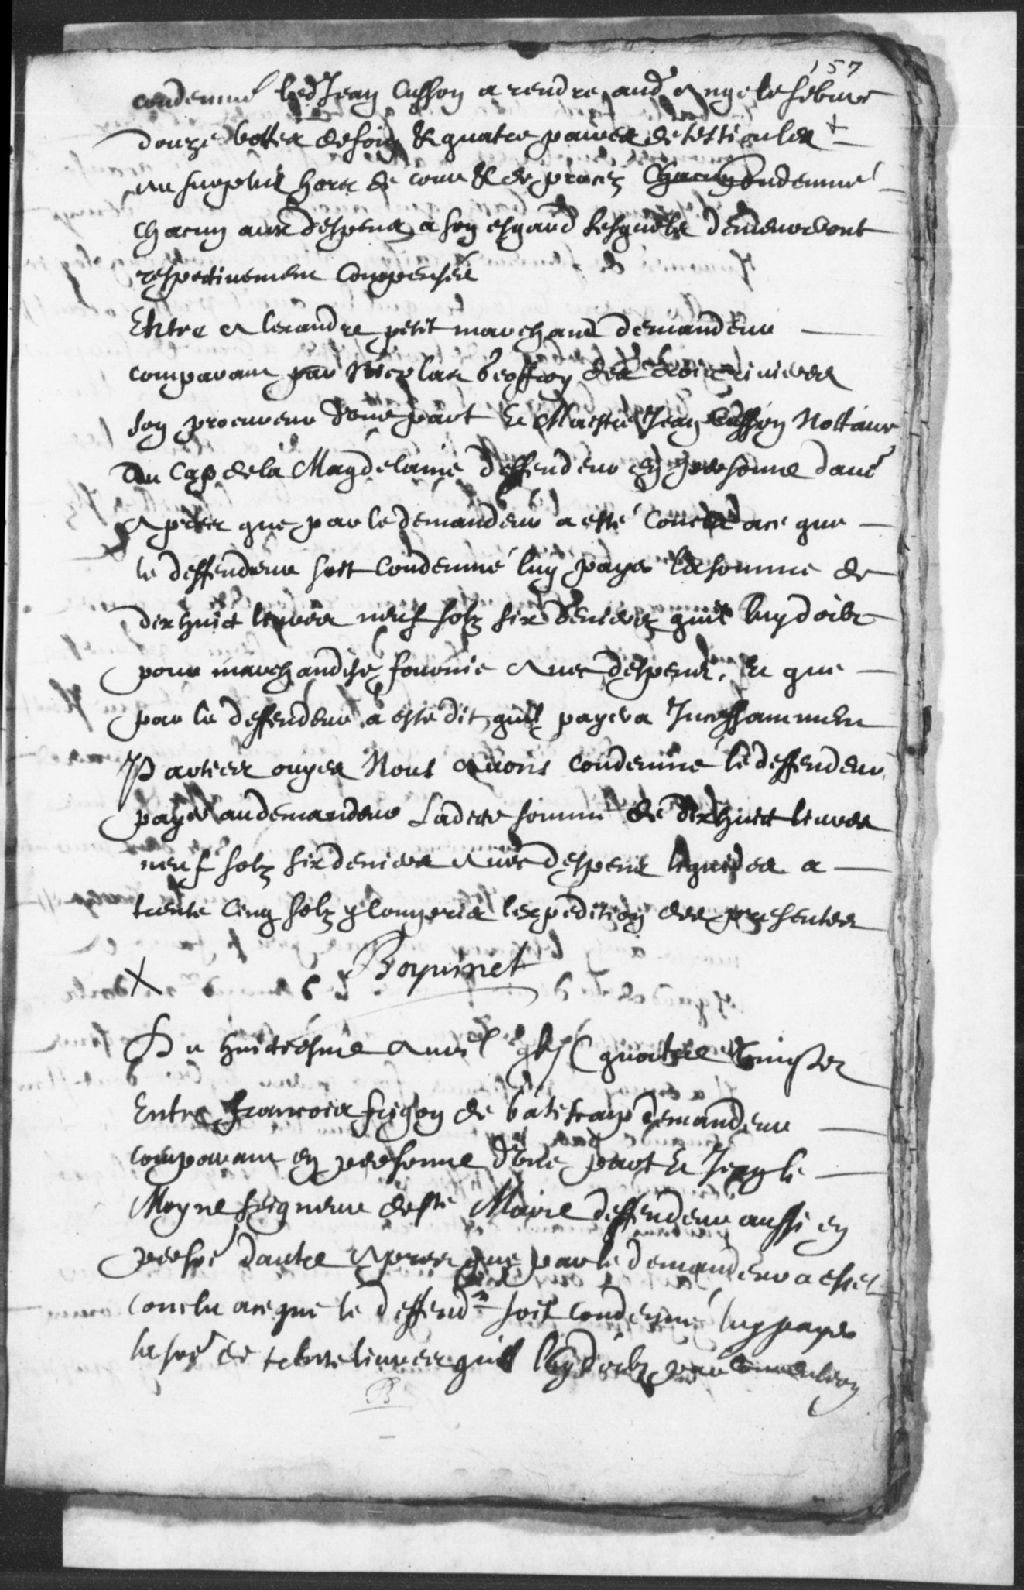 157
condemné led Jean Cusson a rendre aud Ange lefebure
douze bottes de foin & quatre paires de
au surplus hors de cour & de procez condemné
chacun aux despens a son esgard lesquels demeureront
respectiuement compensés
Entre Alexandre petit marchand demandeur
comparant par Nicolas Geoffroy des trois riuieres
son procureur d'une part Et Maistre Jean Cusson Nottaire
Du Cap de la Magdelaine deffendeur en personne daut
Apres que par le demandeur a esté conclu a ce que
le deffendeur soit condemné luy payer la somme de
dix huict liures neuf solz six deniers quil luy doibt
pour marchandise fournie Auec despens, Et que
par le deffendeur a esté dit quil payera Incessamment
Parties ouyes Nous Auons condemné le deffendeur
payer au demandeur Ladite somme de dix huict liures
neuf solz six deniers Auec despens liquidez a
trente cinq solz y compris lexpedition des presentes
X Boyuinet
Du huictiesme Auril gbjC quatre vingtz
Entre francois frigon de batiscan demandeur
comparant en personne d'une part Et Jean le
Moyne seigneur de Ste Marie deffendeur aussi en
persoe dautre Apres que par le demandeur a esté
conclu a ce que le deffendr soit condemné luy payer
la soe de trente liures quil luy doibt par conuention
B